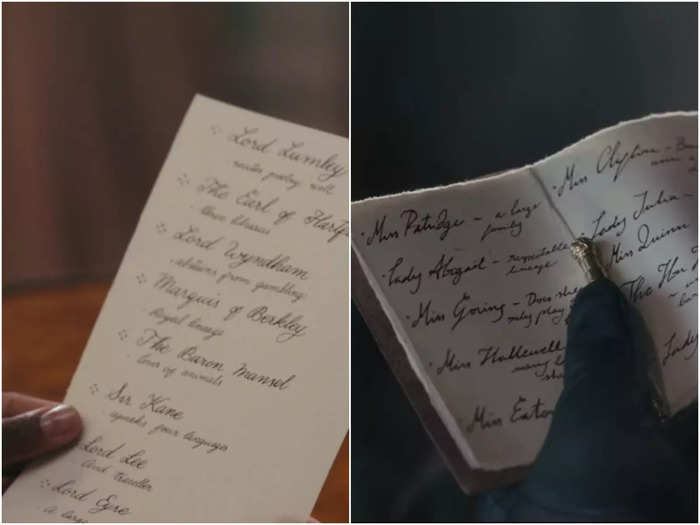 Lord Lumley
recites poetry well
The Earl of
Loves libraries
Lord Wyndham
abstains from gambling
Marquis of Berkley
Royal lineage
The Baron Mansel
love of animals
Sir Kane
speaks four languages
Lord Lee
Avid traveller
Lord Eyre
A large
Miss Patridge - a large
family
Lady Abigail - respectable
lineage
Miss Goring - Does she
only play
Miss Hallewell
many
Miss Eaton
Miss Clyton -
Lady Julia -
Miss Quinn
The Hon
Lady